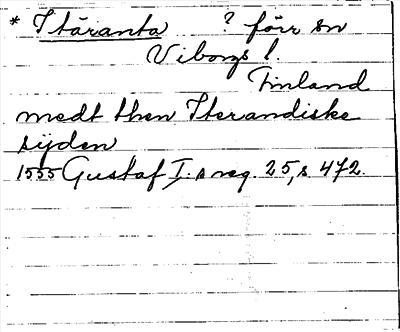 * Itäranta ? förr sn
Viborgs l.
Finland
medt then Iterandiske
sijden
1555 Gustaf I.s reg. 25, s 472.